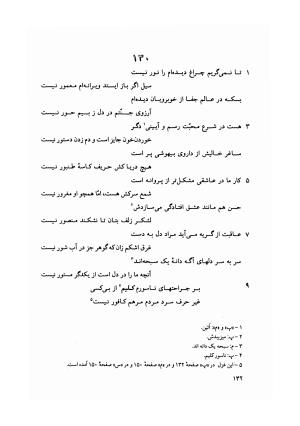 ۱۳۰
۱ تا نمی‌گریم چراغ دیده‌ام را نور نیست
سیل اگر باز ایستد ویرانه‌ام معمور نیست
بسکه در عالم جفا از خوبرویان دیده‌ام
آرزوی جنّتم در دل ز بیم حور نیست
۳ هست در شرع محبّت رسم و آیینی۱ دگر
خوردن خون جایز است و دم زدن دستور نیست
ساغر خیالش از داروی بیهوشی پر است
هیچ دریاکش حریف کاسهٔ طنبور نیست
۵ کار ما در عاشقی مشکل‌تر از پروانه است
شمع سرکش هست، امّا همچو او مغرور نیست
حسن هم مانند عشق افتادگی می‌سازدش۲
لشکر زلف بتان تا نشکند منصور نیست
۷ عاقبت از گریه می‌آید مراد دل به دست
غرق اشکم زان که گوهر جز در آب شور نیست
سر به سر دلهای آگه دانهٔ یک سبحه‌اند۳
آنچه ما را در دل است از یکدگر مستور نیست
۹ بر جراحتهای ناسورم کلیم۴ از بی‌کسی
غیر حرف سرد مردم مرهم کافور نیست۵
۱ - «پ» و «م»: آئین.
۲ - پ: میزیبدش.
۳ - ج: سبحه یک دانه اند.
۴ - پ: ناسور کلیم.
۵ - این غزل در «پ» صفحهٔ ۱۳۲ و در «م» صفحهٔ ۱۵۰ و در «س» صفحهٔ ۱۵۰ آمده است.
۱۳۲